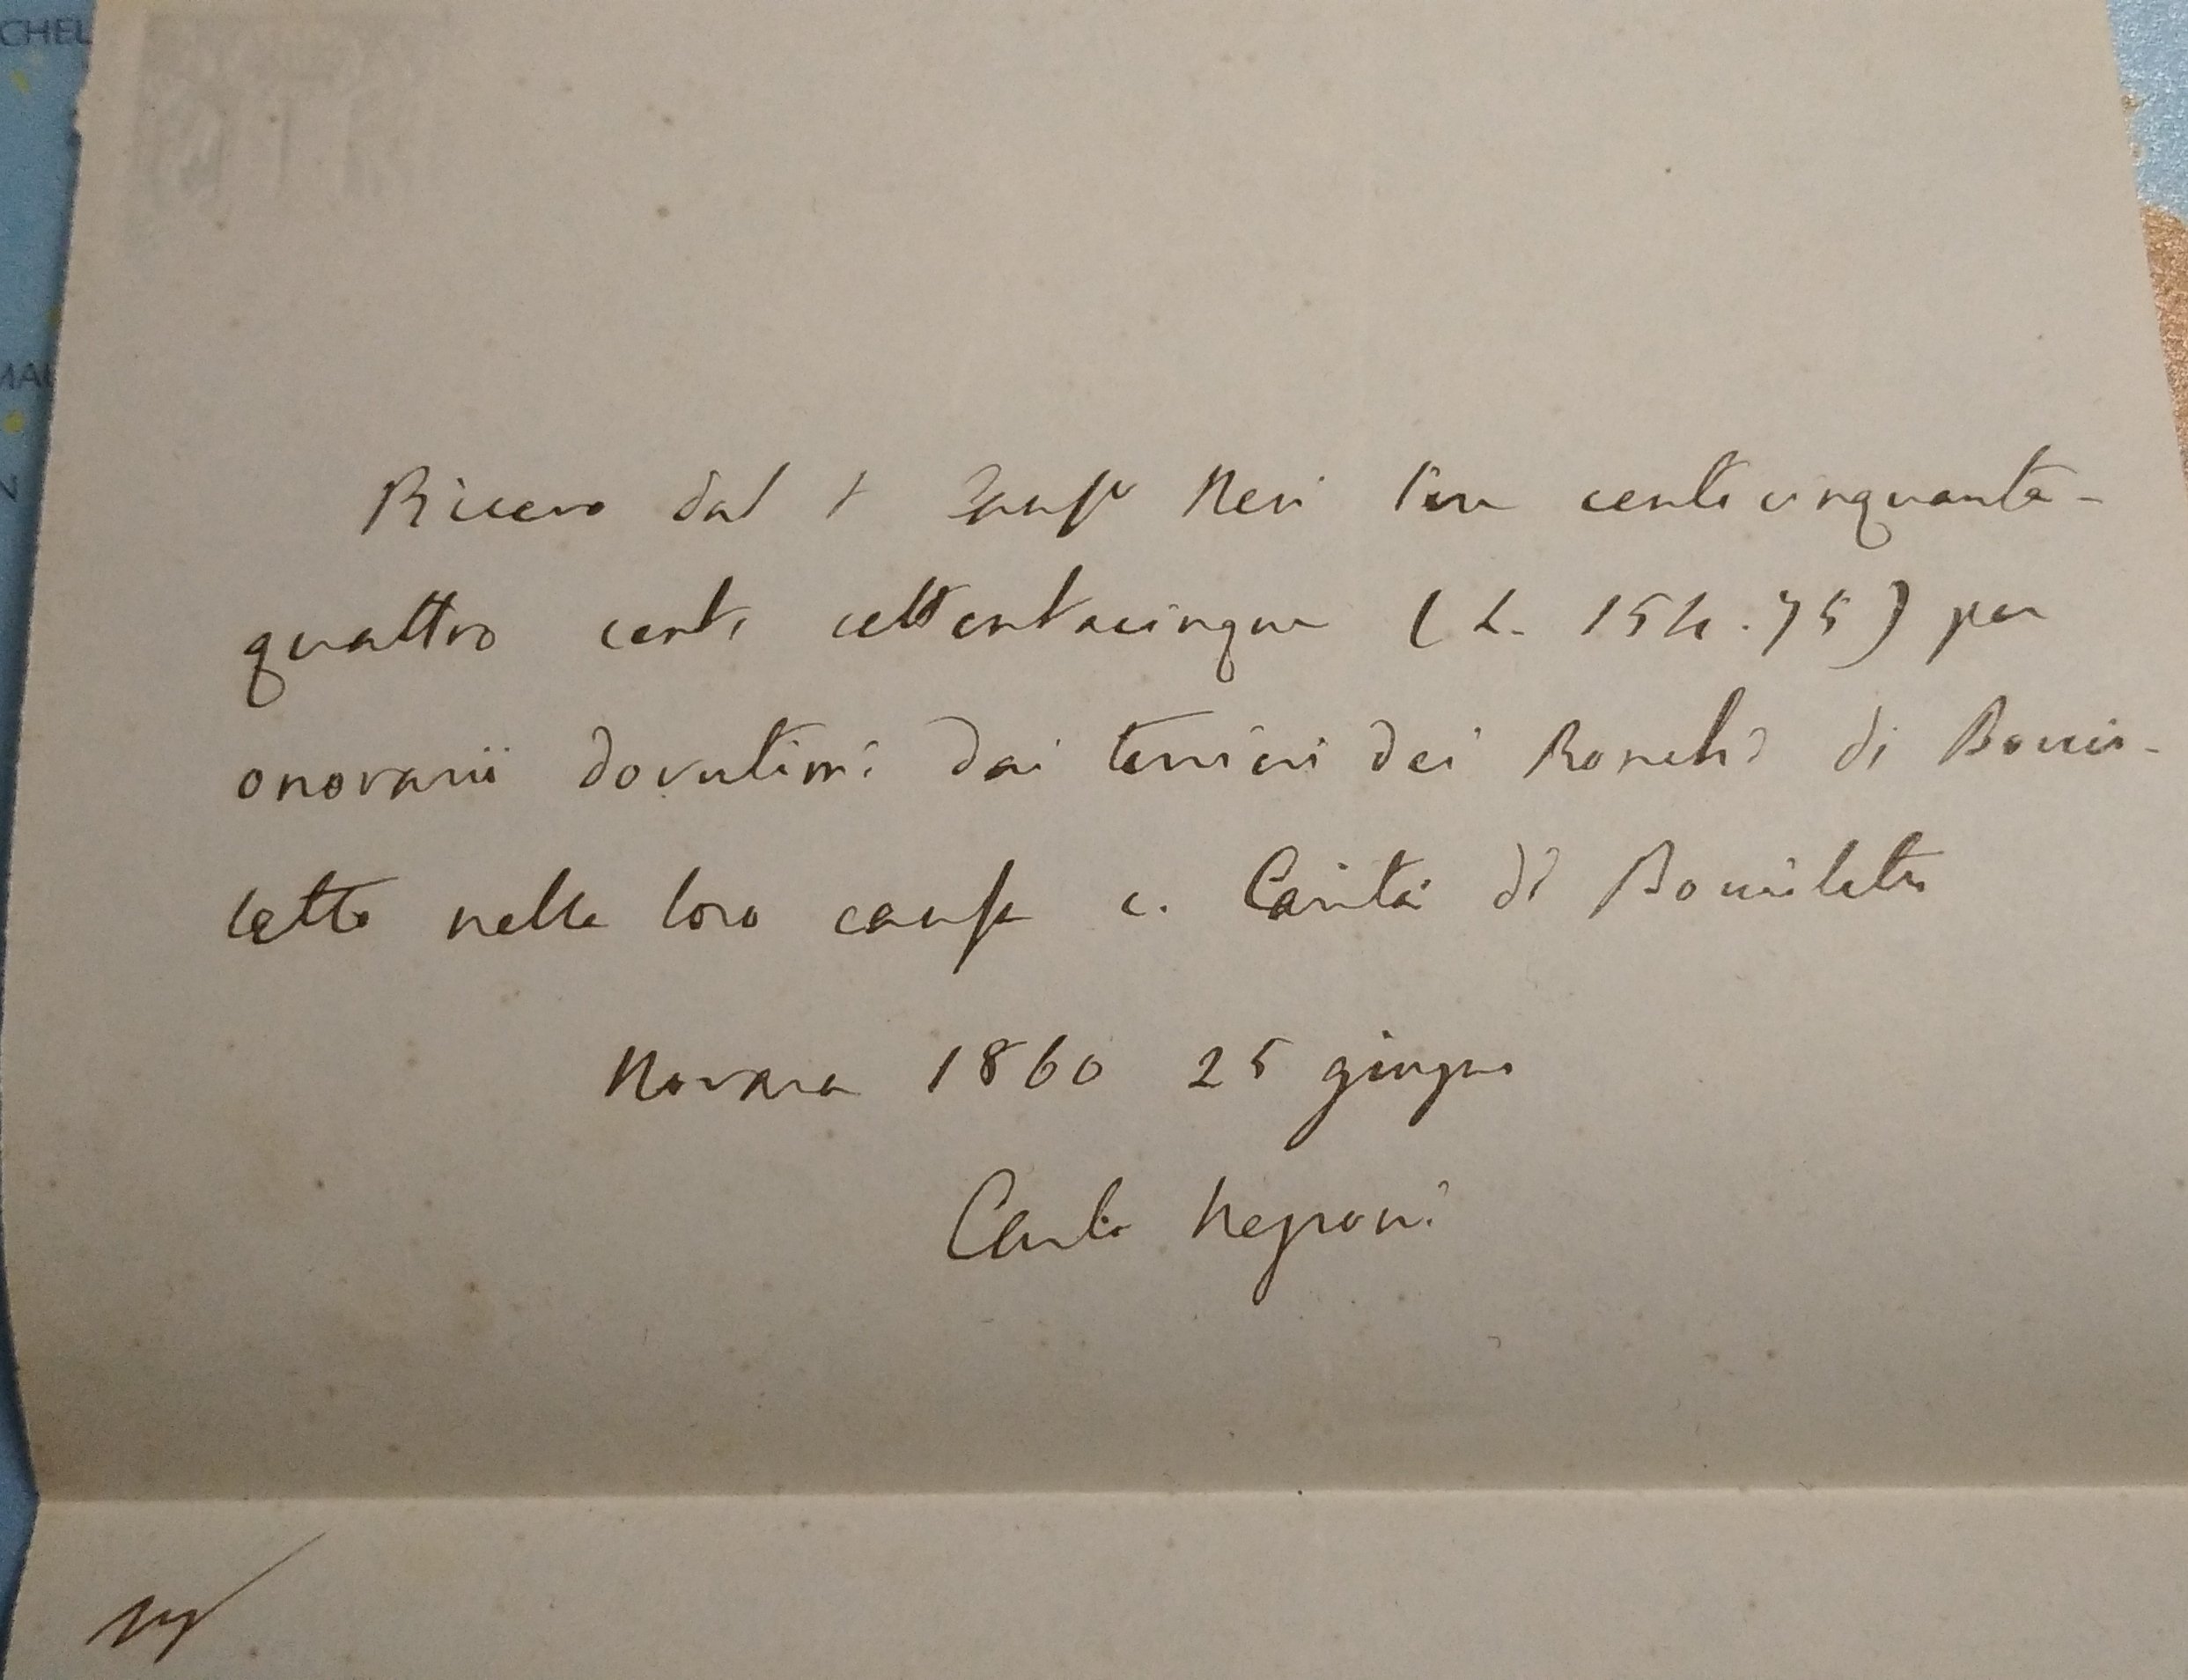 CHEL
MAU
N
Ricevo dal Neri lire centocinquanta-
quattro cent. settantacinque (L. 154.75) per
onorarii dovutimi dai terrieri dei Ronchi di
nella loro causa c. Carità di
Novara 1860 25 giugno
Carlo Negroni